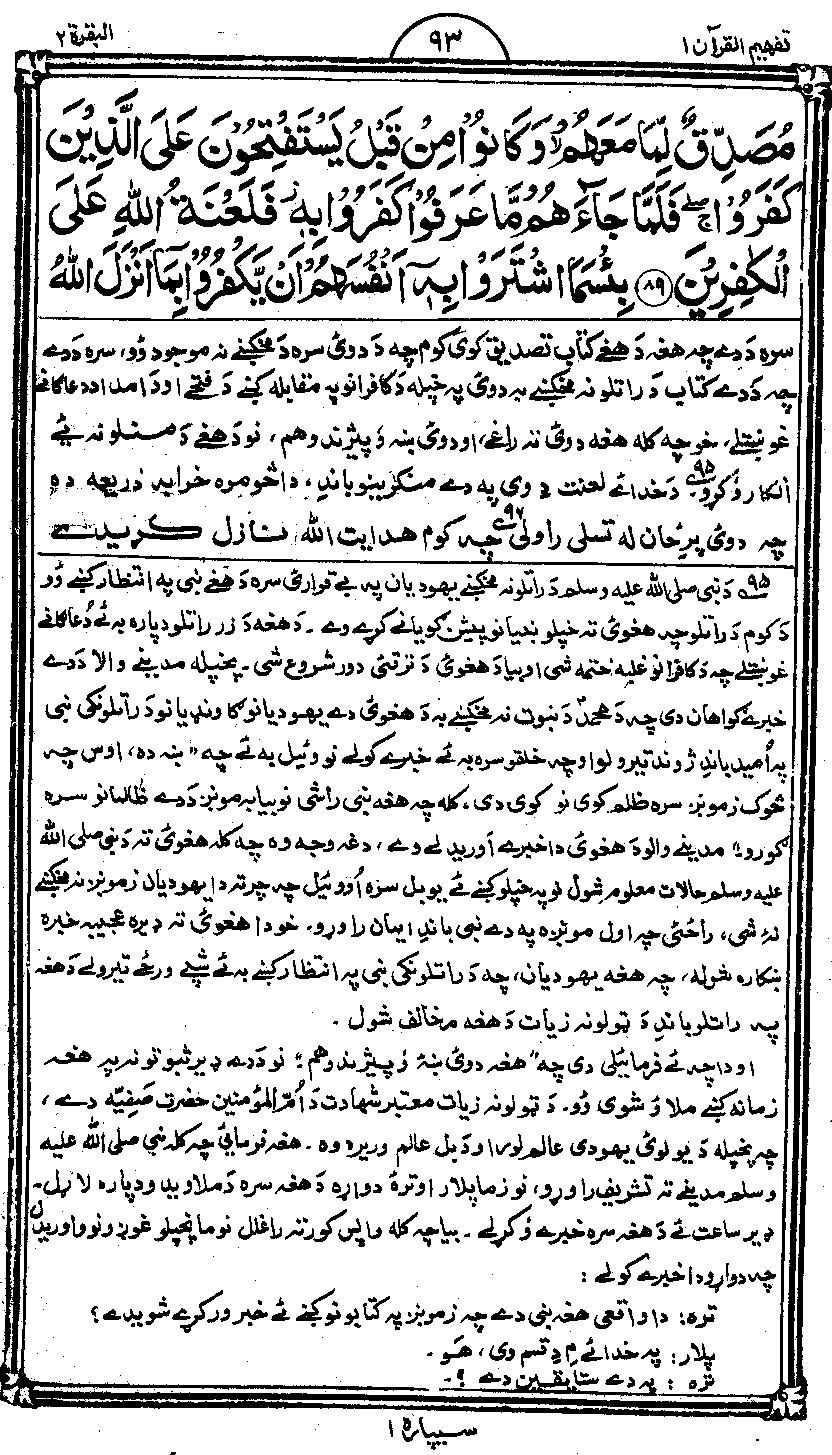 تفهیم القرآن ۱
۹۳
البقرة ۲
مُصَدِّقٌ لِّمَا مَعَهُمْ وَكَانُوْا مِنْ قَبْلُ يَسْتَفْتِحُوْنَ عَلَى الَّذِيْنَ
كَفَرُوْا ۚ فَلَمَّا جَآءَهُمْ مَّا عَرَفُوْا كَفَرُوْا بِهٖ ۫ فَلَعْنَةُ اللّٰهِ عَلَى
الْكٰفِرِيْنَ ﴿۸۹﴾ بِئْسَمَا اشْتَرَوْا بِهٖٓ اَنْفُسَهُمْ اَنْ يَّكْفُرُوْا بِمَآ اَنْزَلَ اللّٰهُ
سره دَدے چه هغه دَ هغے کتاب تصدیق کوی کوم چه دَ دوئ سره دَ مخکښے نه موجود وُو، سره دَدے
چه دَدے کتاب دَ راتلو نه مخکښے به دوئ په خپله دَ کافرانو په مقابله کښے دَ فتحے او دَ امداد دعاګانے
غوښتلے، خو چه کله هغه دوئ ته راغے، او دوئ ښه وُپیژندو هم، نو دَ هغے دَ منلو نه ئے
انکار وُکړو۹۵ دَ خدائے لعنت دِ وی په دے منکرینو باندِ، دا څومره خرابه ذریعه ده
چه دوئ پرِ ځان له تسلی راولی۹۶ چه کوم هدایت الله نازل کړیدے
۹۵ دَ نبی صلی الله علیه وسلم دَ راتلو نه مخکښے یهودیان په بے قرارئ سره دَ هغے نبی په انتظار کښے وُو
دَ کوم دَ راتلو چه هغوئ ته خپلو نبیانو پیشن ګویانے کړے وے ۔ دَ هغه دَ زر راتلو دپاره به ئے دُعاګانے
غوښتلے چه دَ کافرانو غلبه ختمه شی او بیا دَ هغوئ دَ ترقئ دور شروع شی ۔ پخپله مدینے والا دَدے
خبرے ګواهان دی چه دَ محمدؐ دَ نبوت نه مخکښے به دَ هغوئ دے یهودیانو ګاونډیانو دَ راتلونکی نبی
په اُمید باندِ ژوند تیرولو او چه خلقو سره به ئے خبرے کولے نو وئیل به ئے چه "ښه ده، اوس چه
څوک زمونږ سره ظلم کوی نو کوی دی، کله چه هغه نبی راشی نو بیا به مونږ دَدے ظالمانو سره
ګورو"۔ مدینے والو دَ هغوئ دا خبرے اوریدلے وے، دغه وجه وه چه کله هغوئ ته دَ نبی صلی الله
علیه وسلم حالات معلوم شول نو په خپلو کښے ئے یو بل سره اُووئیل چه چرته دا یهودیان زمونږ نه مخکښے
نۀ شی، راځئ چه اول مونږه په دے نبی باندِ ایمان راوړو. خو دا هغوئ ته ډیره عجیبه خبره
ښکاره شوله، چه هغه یهودیان، چه دَ راتلونکی نبی په انتظار کښے به ئے شپے ورځے تیرولے دَ هغه
په راتلو باندِ دَ ټولو نه زیات دَ هغه مخالف شول ۔
او دا چه ئے فرمائیلی دی چه "هغه دوئ ښۀ وُپیژندو هم"؛ نو دَدے ډیر ثبوتونه په هغه
زمانه کښے ملاوُ شوی وُو. دَ ټولو نه زیات معتبر شهادت دَ اُمّ المؤمنین حضرت صَفِیّه دے،
چه پخپله دَ یو لوئ یهودی عالم لور او دَ بل عالم وریره وه ۔ هغه فرمائی چه کله نبی صلی الله علیه
وسلم مدینے ته تشریف راوړو، نو زما پلار او ترۀ دواړه دَ هغه سره دَ ملاویدو دپاره لاړل ۔
ډیر ساعت ئے دَ هغه سره خبرے وُکړلے ۔ بیا چه کله واپس کور ته راغلل نو ما پخپلو غوږونو واوریدل
چه دواړو دا خبرے کولے :
ترۀ: دا واقعی هغه نبی دے چه زمونږ په کتابونو کښے ئے خبر ورکړے شویدے؟
پلار: په خدائے مِ دِ قسم وی، هَو ۔
ترۀ : په دے ستا یقین دے ؟ ۔
سیپاره ۱